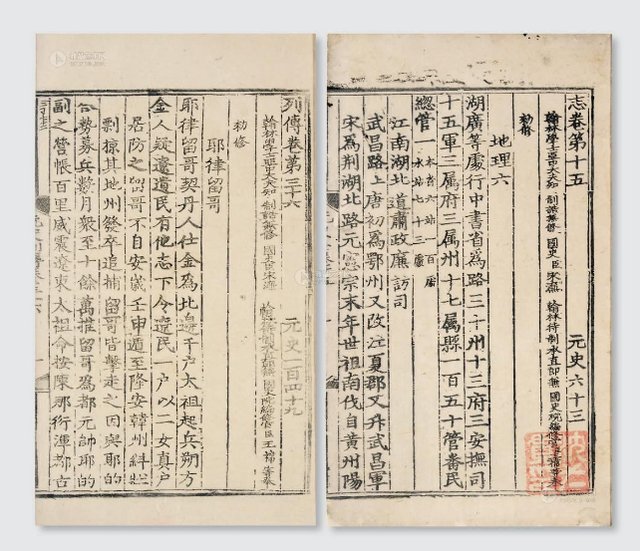 志卷第十五
元史六十三
翰林學士亞中大夫知制誥兼脩國史臣宋濂
翰林待制承直郎兼國史院編脩
勑修
地理六
湖廣等處行中書省爲路三十州十三府三安撫司
十五軍三属府三属州十七属縣一百五十管番民
總管一
江南湖北道肅政廉訪司
武昌路上唐初爲鄂州又改江夏郡又升武昌軍
宋爲荆湖北路元憲宗末年世祖南伐自黄州陽
列傳卷第三十六
元史一百四十九
翰林學士亞中大夫知制誥兼脩國史臣宋濂
勑修
耶律留哥
耶律留哥契丹人仕金爲北邊千户太祖起兵朔方
金人疑遼遺民有他志下令遼民一户以二女真户
居防之留哥不自安歲壬申遁至隆安韓州糾壯
剽掠其地州發卒追捕留哥皆擊走之因與耶的
合勢募兵數月衆至十餘萬推留哥爲都元帥耶的
副之營帳百里威震遼東太祖命按陳那衍渾都古